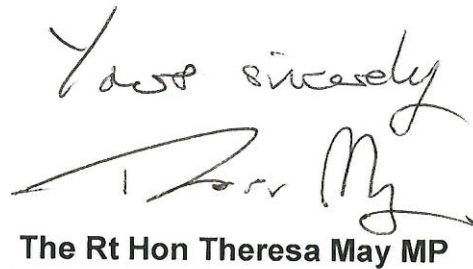 Yours sincerely
Theresa May
The Rt Hon Theresa May MP